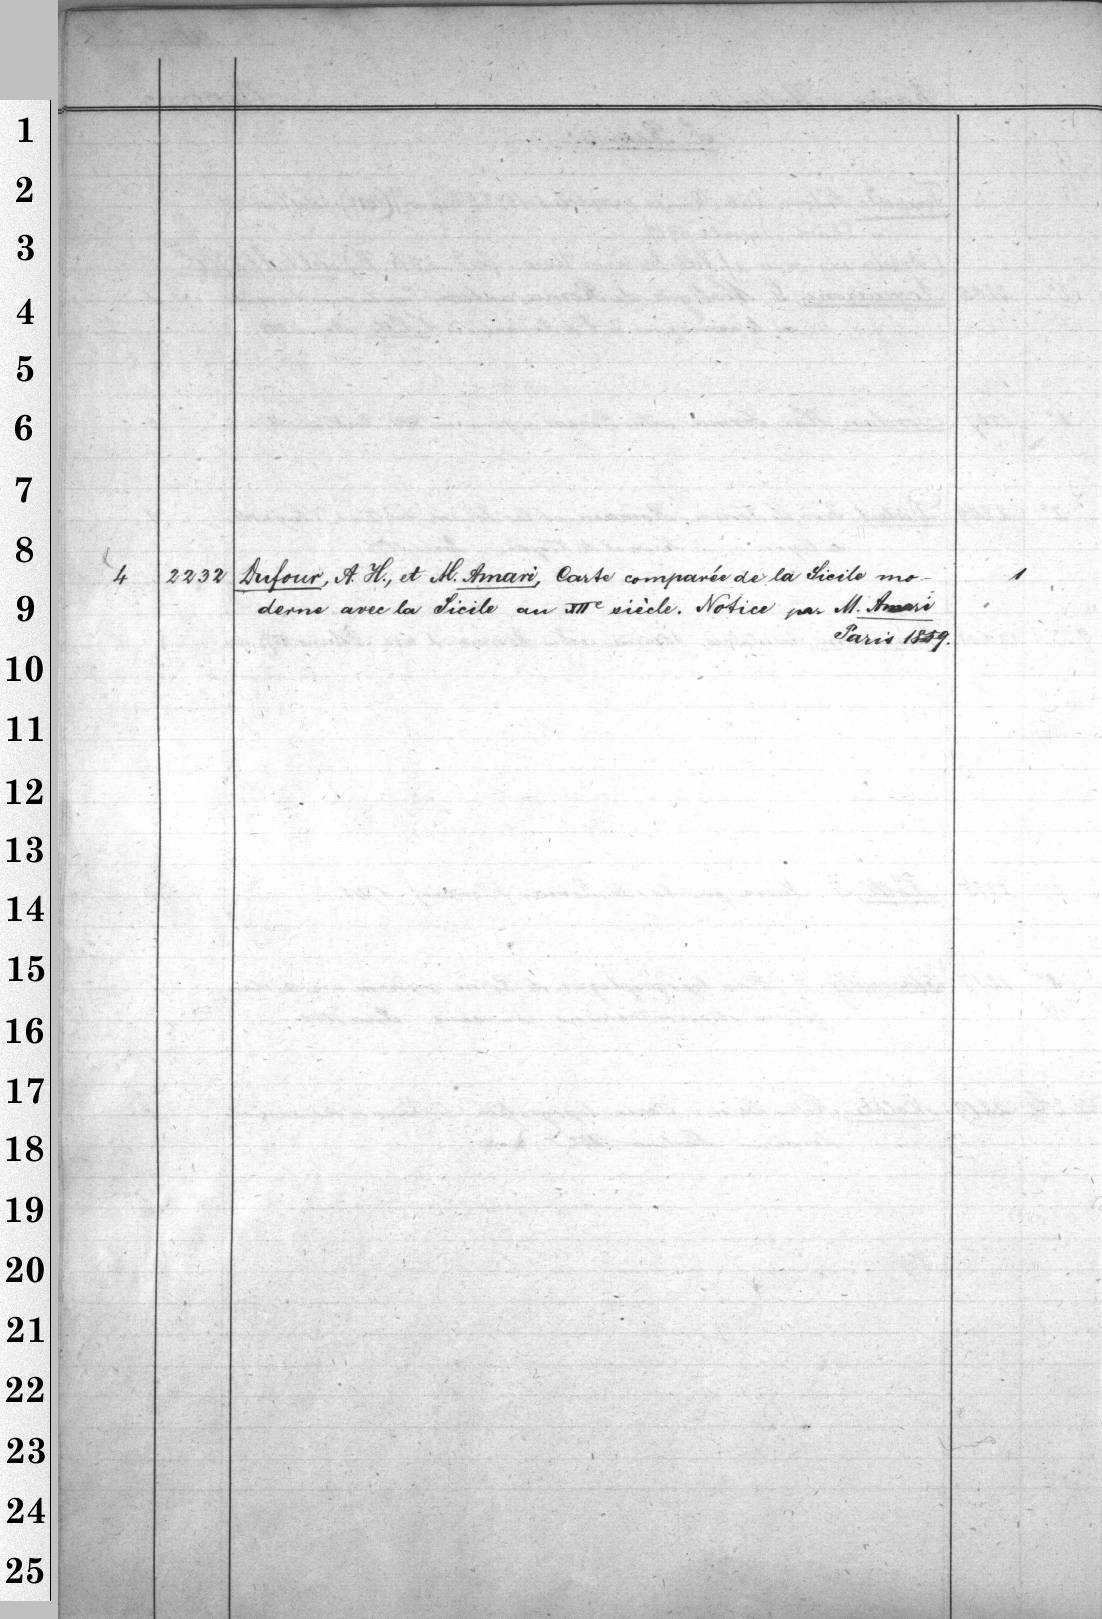 1
2
3
4
5
6
7
8
4 2232 Dufour, A. H., et M. Amari, Carte comparée de la Sicile mo- 1
9 derne avec la Sicile au XIIe siècle. Notice par M. Amari
Paris 1859.
10
11
12
13
14
15
16
17
18
19
20
21
22
23
24
25